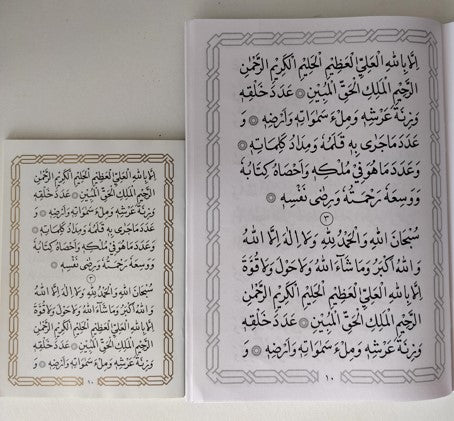 اِلَّا بِاللهِ الْعَلِيِّ الْعَظِيمِ الْحَلِيمِ الْكَرِيمِ الرَّحْمٰنِ
الرَّحِيمِ الْمَلِكِ الْحَقِّ الْمُبِينِ ۞ عَدَدَ خَلْقِهٖ
وَزِنَةَ عَرْشِهٖ وَمِلْءَ سَمٰوَاتِهٖ وَاَرْضِهٖ ۞ وَ
عَدَدَ مَاجَرٰى بِهٖ قَلَمُهُ وَمِدَادَ كَلِمَاتِهٖ ۞
وَعَدَدَ مَاهُوَ فِي مُلْكِهٖ وَاَحْصَاهُ كِتَابُهُ
وَوَسِعَهُ رَحْمَتُهُ وَرِضٰى نَفْسِهٖ ۞
٣
سُبْحَانَ اللهِ وَالْحَمْدُ لِلّٰهِ وَلَا اِلٰهَ اِلَّا اللهُ
وَاللهُ اَكْبَرُ وَمَا شَاۤءَ اللهُ وَلَا حَوْلَ وَلَا قُوَّةَ
اِلَّا بِاللهِ الْعَلِيِّ الْعَظِيمِ الْحَلِيمِ الْكَرِيمِ الرَّحْمٰنِ
الرَّحِيمِ الْمَلِكِ الْحَقِّ الْمُبِينِ ۞ عَدَدَ خَلْقِهٖ
وَزِنَةَ عَرْشِهٖ وَمِلْءَ سَمٰوَاتِهٖ وَاَرْضِهٖ ۞ وَ
١٠
اِلَّا بِاللهِ الْعَلِيِّ الْعَظِيمِ الْحَلِيمِ الْكَرِيمِ الرَّحْمٰنِ
الرَّحِيمِ الْمَلِكِ الْحَقِّ الْمُبِينِ ۞ عَدَدَ خَلْقِهٖ
وَزِنَةَ عَرْشِهٖ وَمِلْءَ سَمٰوَاتِهٖ وَاَرْضِهٖ ۞ وَ
عَدَدَ مَاجَرٰى بِهٖ قَلَمُهُ وَمِدَادَ كَلِمَاتِهٖ ۞
وَعَدَدَ مَاهُوَ فِي مُلْكِهٖ وَاَحْصَاهُ كِتَابُهُ
وَوَسِعَهُ رَحْمَتُهُ وَرِضٰى نَفْسِهٖ ۞
٣
سُبْحَانَ اللهِ وَالْحَمْدُ لِلّٰهِ وَلَا اِلٰهَ اِلَّا اللهُ
وَاللهُ اَكْبَرُ وَمَا شَاۤءَ اللهُ وَلَا حَوْلَ وَلَا قُوَّةَ
اِلَّا بِاللهِ الْعَلِيِّ الْعَظِيمِ الْحَلِيمِ الْكَرِيمِ الرَّحْمٰنِ
الرَّحِيمِ الْمَلِكِ الْحَقِّ الْمُبِينِ ۞ عَدَدَ خَلْقِهٖ
وَزِنَةَ عَرْشِهٖ وَمِلْءَ سَمٰوَاتِهٖ وَاَرْضِهٖ ۞ وَ
١٠